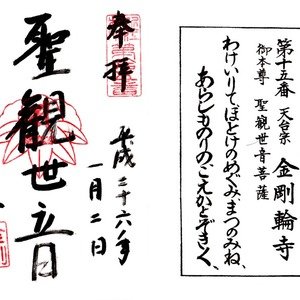 第十五番 天台宗 金剛輪寺
御本尊 聖觀世音菩薩
わけいりてほとけのめぐみまつのみね、
あらしものりのこえかとぞきく、
奉拝
平成二十六年
一月二日
聖觀世音